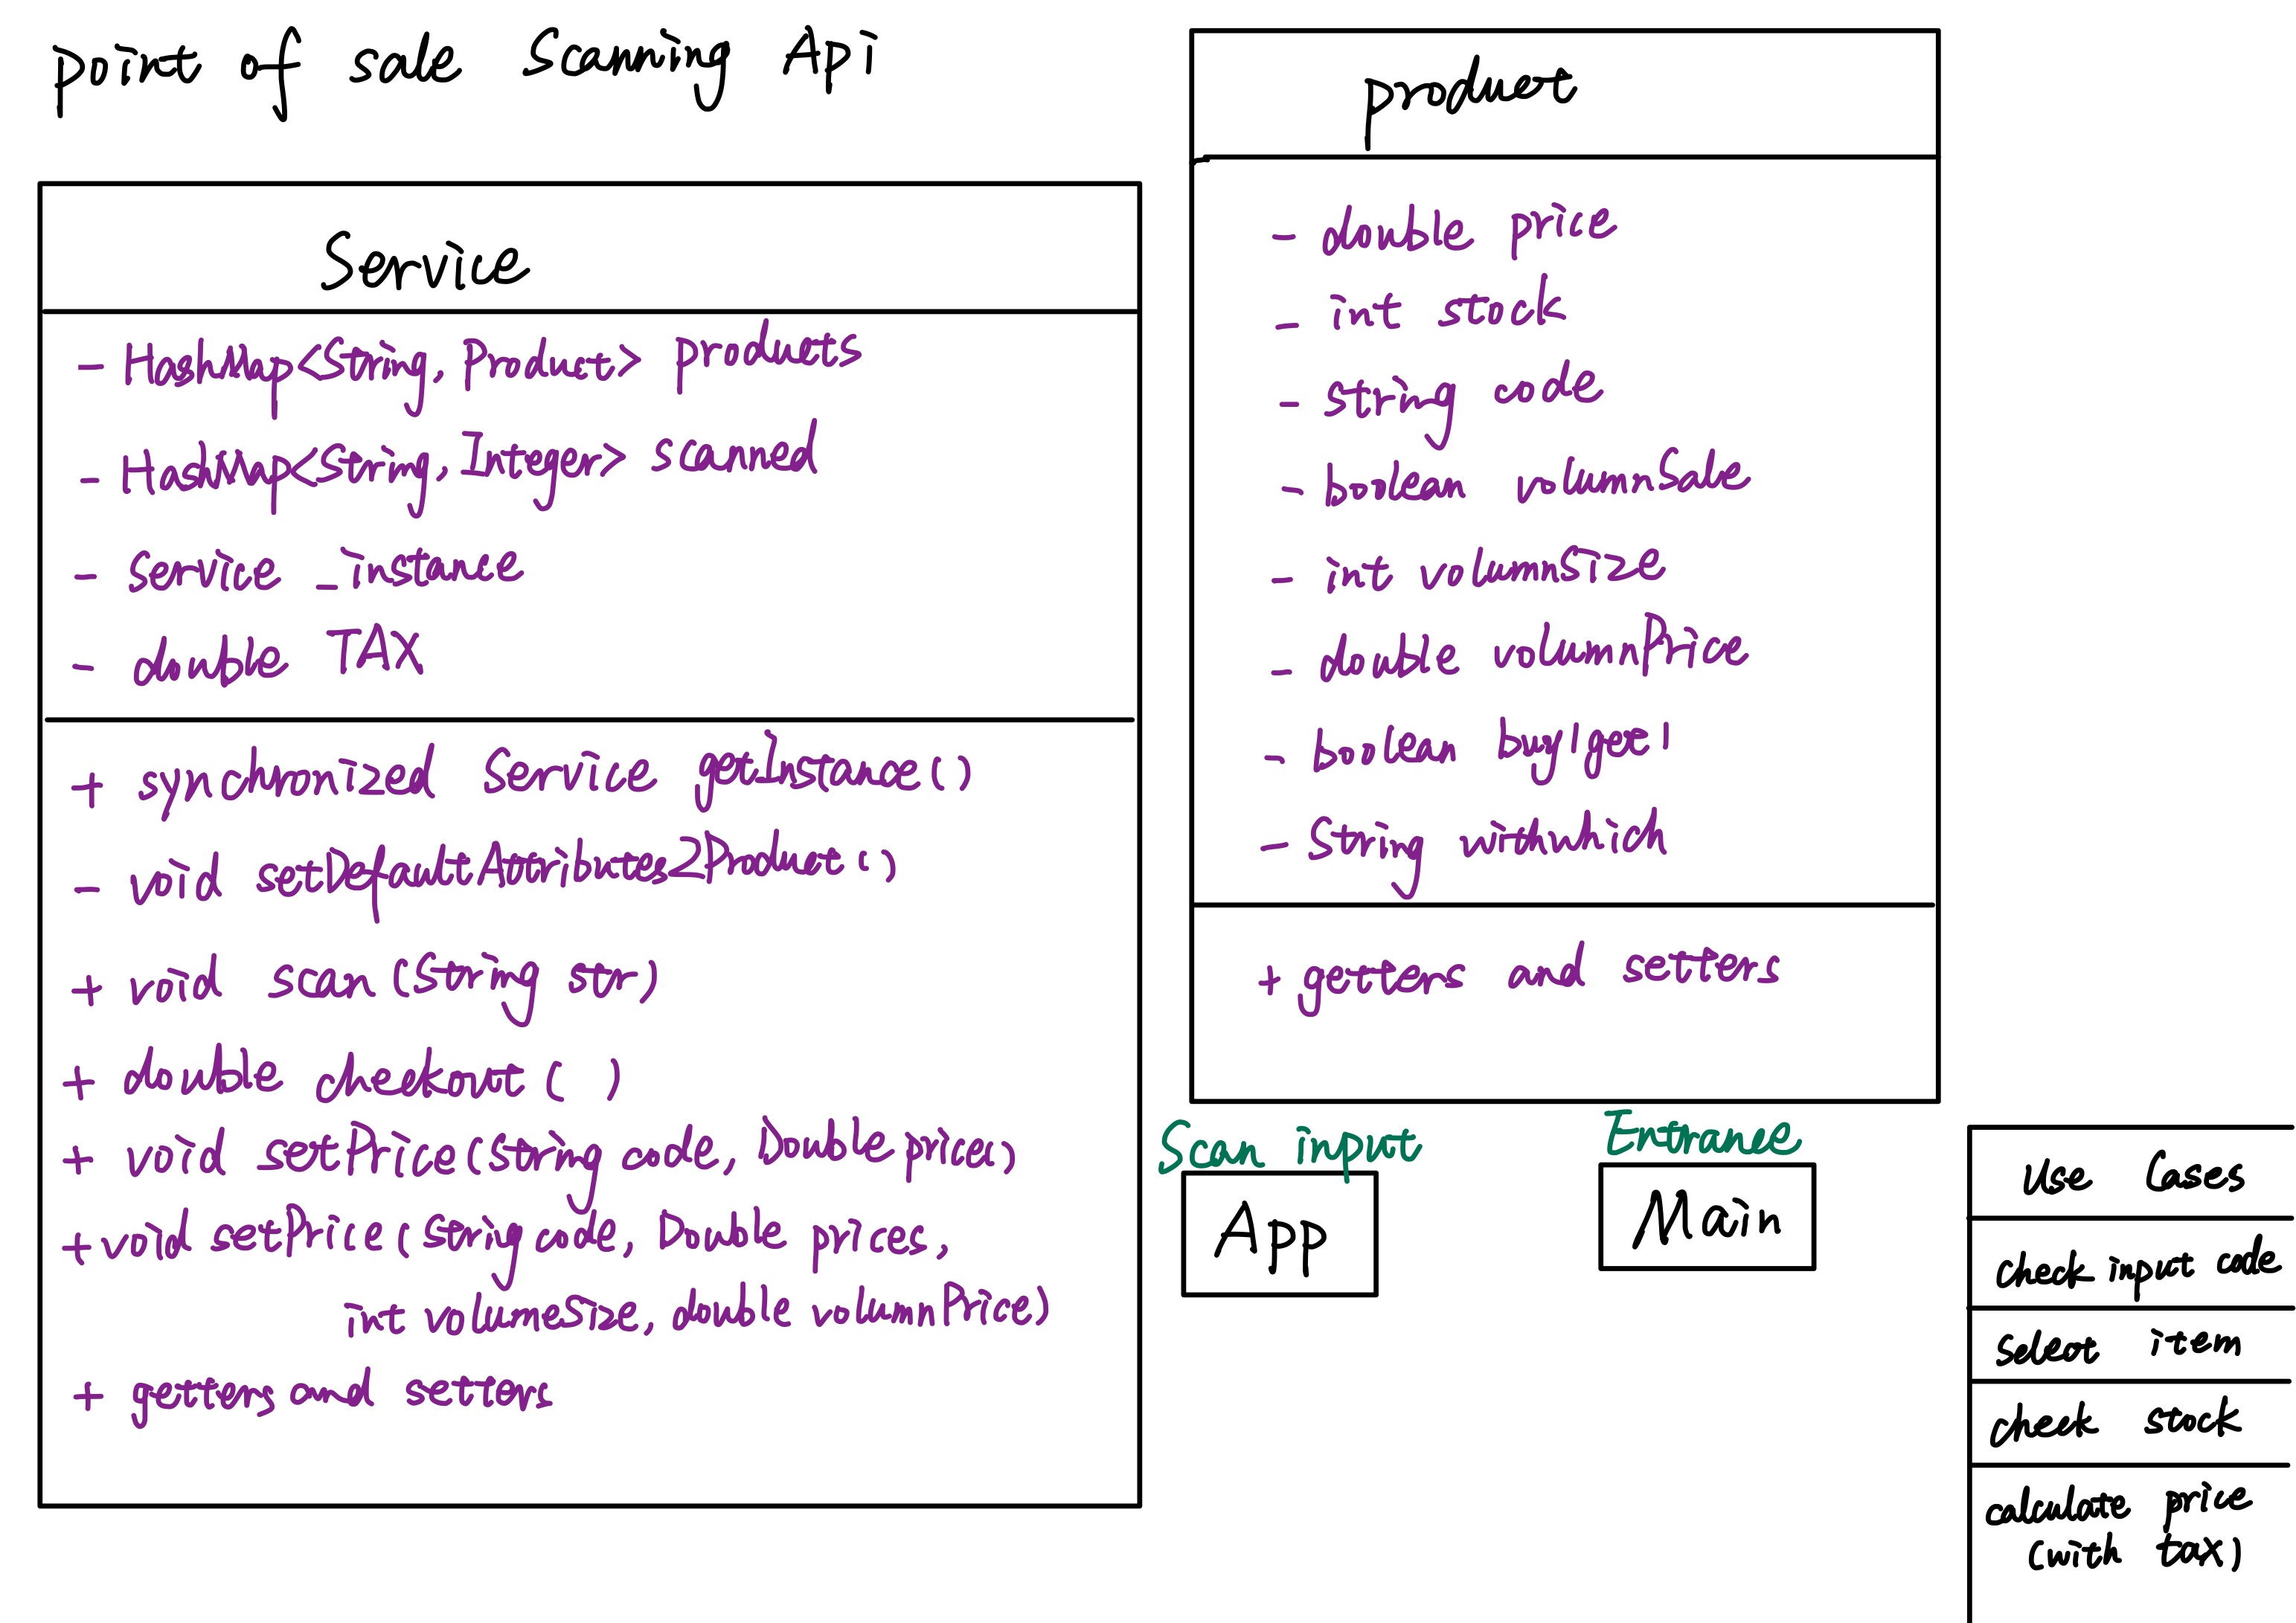 point of sale Scanning Api
Service
- HashMap<String, Product> products
- HashMap<String, Integer> scanned
- Service _instance
- double TAX
+ synchronized Service getInstance()
- void setDefaultAttributes2Product()
+ void scan(String str)
+ double checkout()
+ void setPrice(String code, Double price()
+ void setPrice(Strig code, Double prices,
int volumeSize, double volumnPrice)
+ getters and setters
product
- double price
- int stock
- string code
- boolean volumnSale
- int volumnSize
- double volumnPrice
- boolean buy1get1
- String withwhich
+ getters and setters
Scan input
App
Entrance
Main
Use Cases
check input code
select item
check stock
calculate price
(with tax)